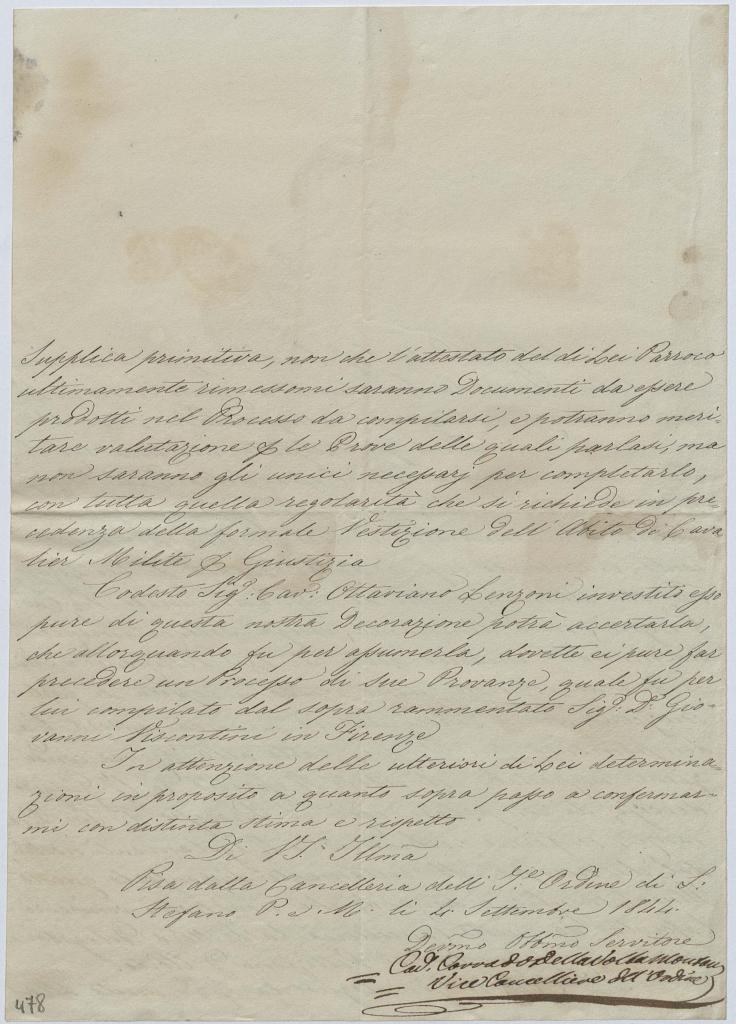 Supplica primitiva, non che l'attestato del di Lei Parroco
ultimamente rimessomi saranno Documenti da essere
prodotti nel Processo da compilarsi, e potranno meri-
tare valutazione p le Prove delle quali parlasi, ma
non saranno gli unici necessarj per completarlo,
con tutta quella regolarità che si richiede in pre-
cedenza della formale Vestizione dell'Abito di Cava
lier Milite p Giustizia
Codesto Sig: Cav: Ottaviano Lenzoni investito esso
pure di questa nostra Decorazione potrà accertarla,
che allorquando fu per assumerla, dovette ei pure far
precedere un Processo di sue Provanze, quale fu per
lui compilato dal sopra rammentato Sig: D: Gio-
vanni Viscontini in Firenze
In attenzione delle ulteriori di Lei determina-
zioni in proposito a quanto sopra passo a confermar-
mi con distinta stima e rispetto
Di V.S. Illma
Pisa dalla Cancelleria dell' I:e Ordine di S:
Stefano P. e M. li 4 Settembre 1844.
Devmo Obbmo Servitore
Cav. Corrado Della
Vice Cancelliere dell'Ordine
478